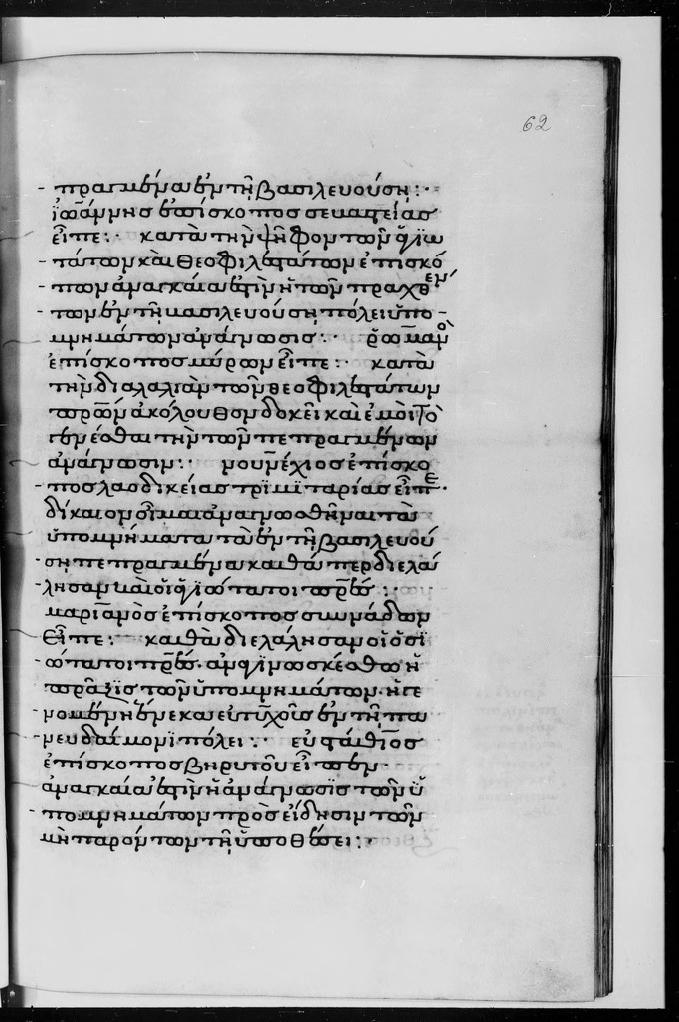 62
πραγμένα ἐν τῆ βασιλευούση:·
ἰωάννησ ἐπίσκοποσ σεβαστείασ
εἶπε:· κατὰ τὴν ψῆφον τῶν ἁγιω
τάτων καὶ θεοφιλεστάτων ἐπισκό
πων ἀναγκαία ἐστὶν ἡ τῶν πραχθέν
των ἐν τῆ βασιλευούση πόλει ὑπο
μνημάτων ἀνάγνωσισ:· ῥωμανὸ
ἐπίσκοποσ μύρων εἶπε:· κατὰ
τὴν διαλαλιὰν τῶν θεοφιλεστάτων
πρων ἀκόλουθον δοκεῖ καὶ ἐμοὶ τὸ
γενέσθαι τὴν τῶν πεπραγμένων
ἀνάγνωσιν:· νουνέχιοσ ἐπίσκο
ποσ λαοδικείασ τριμιταρίασ εἶπε·
δίκαιον οἶμαι ἀναγνωσθῆναι τὰ
ὑπομνήματα τὰ ἐν τῆ βασιλευού
ση πεπραγμένα καθάπερ διελά
λησαν καὶ οἱ ἁγιώτατοι πρεσ:·
μαριανὸσ ἐπίσκοποσ συνάδων
εἶπε:· καθὰ διελάλησαν οἱ ὁσι
ώτατοι πρεσ· ἀναγινωσκέσθω ἡ
πρᾶξισ τῶν ὑπομνημάτων· ἡ γε
νομένη ἕνεκα εὐτυχοῦσ ἐν τῆ πα
νευδαίμονι πόλει:· εὐστάθιοσ
ἐπίσκοποσ βηρυτοῦ εἶπεν·
ἀναγκαία ἐστὶν ἡ ἀνάγνωσισ τῶν ὑ
πομνημάτων πρὸσ εἴδησιν τῶν
μὴ παρόντων τῆ ὑποθέσει:·